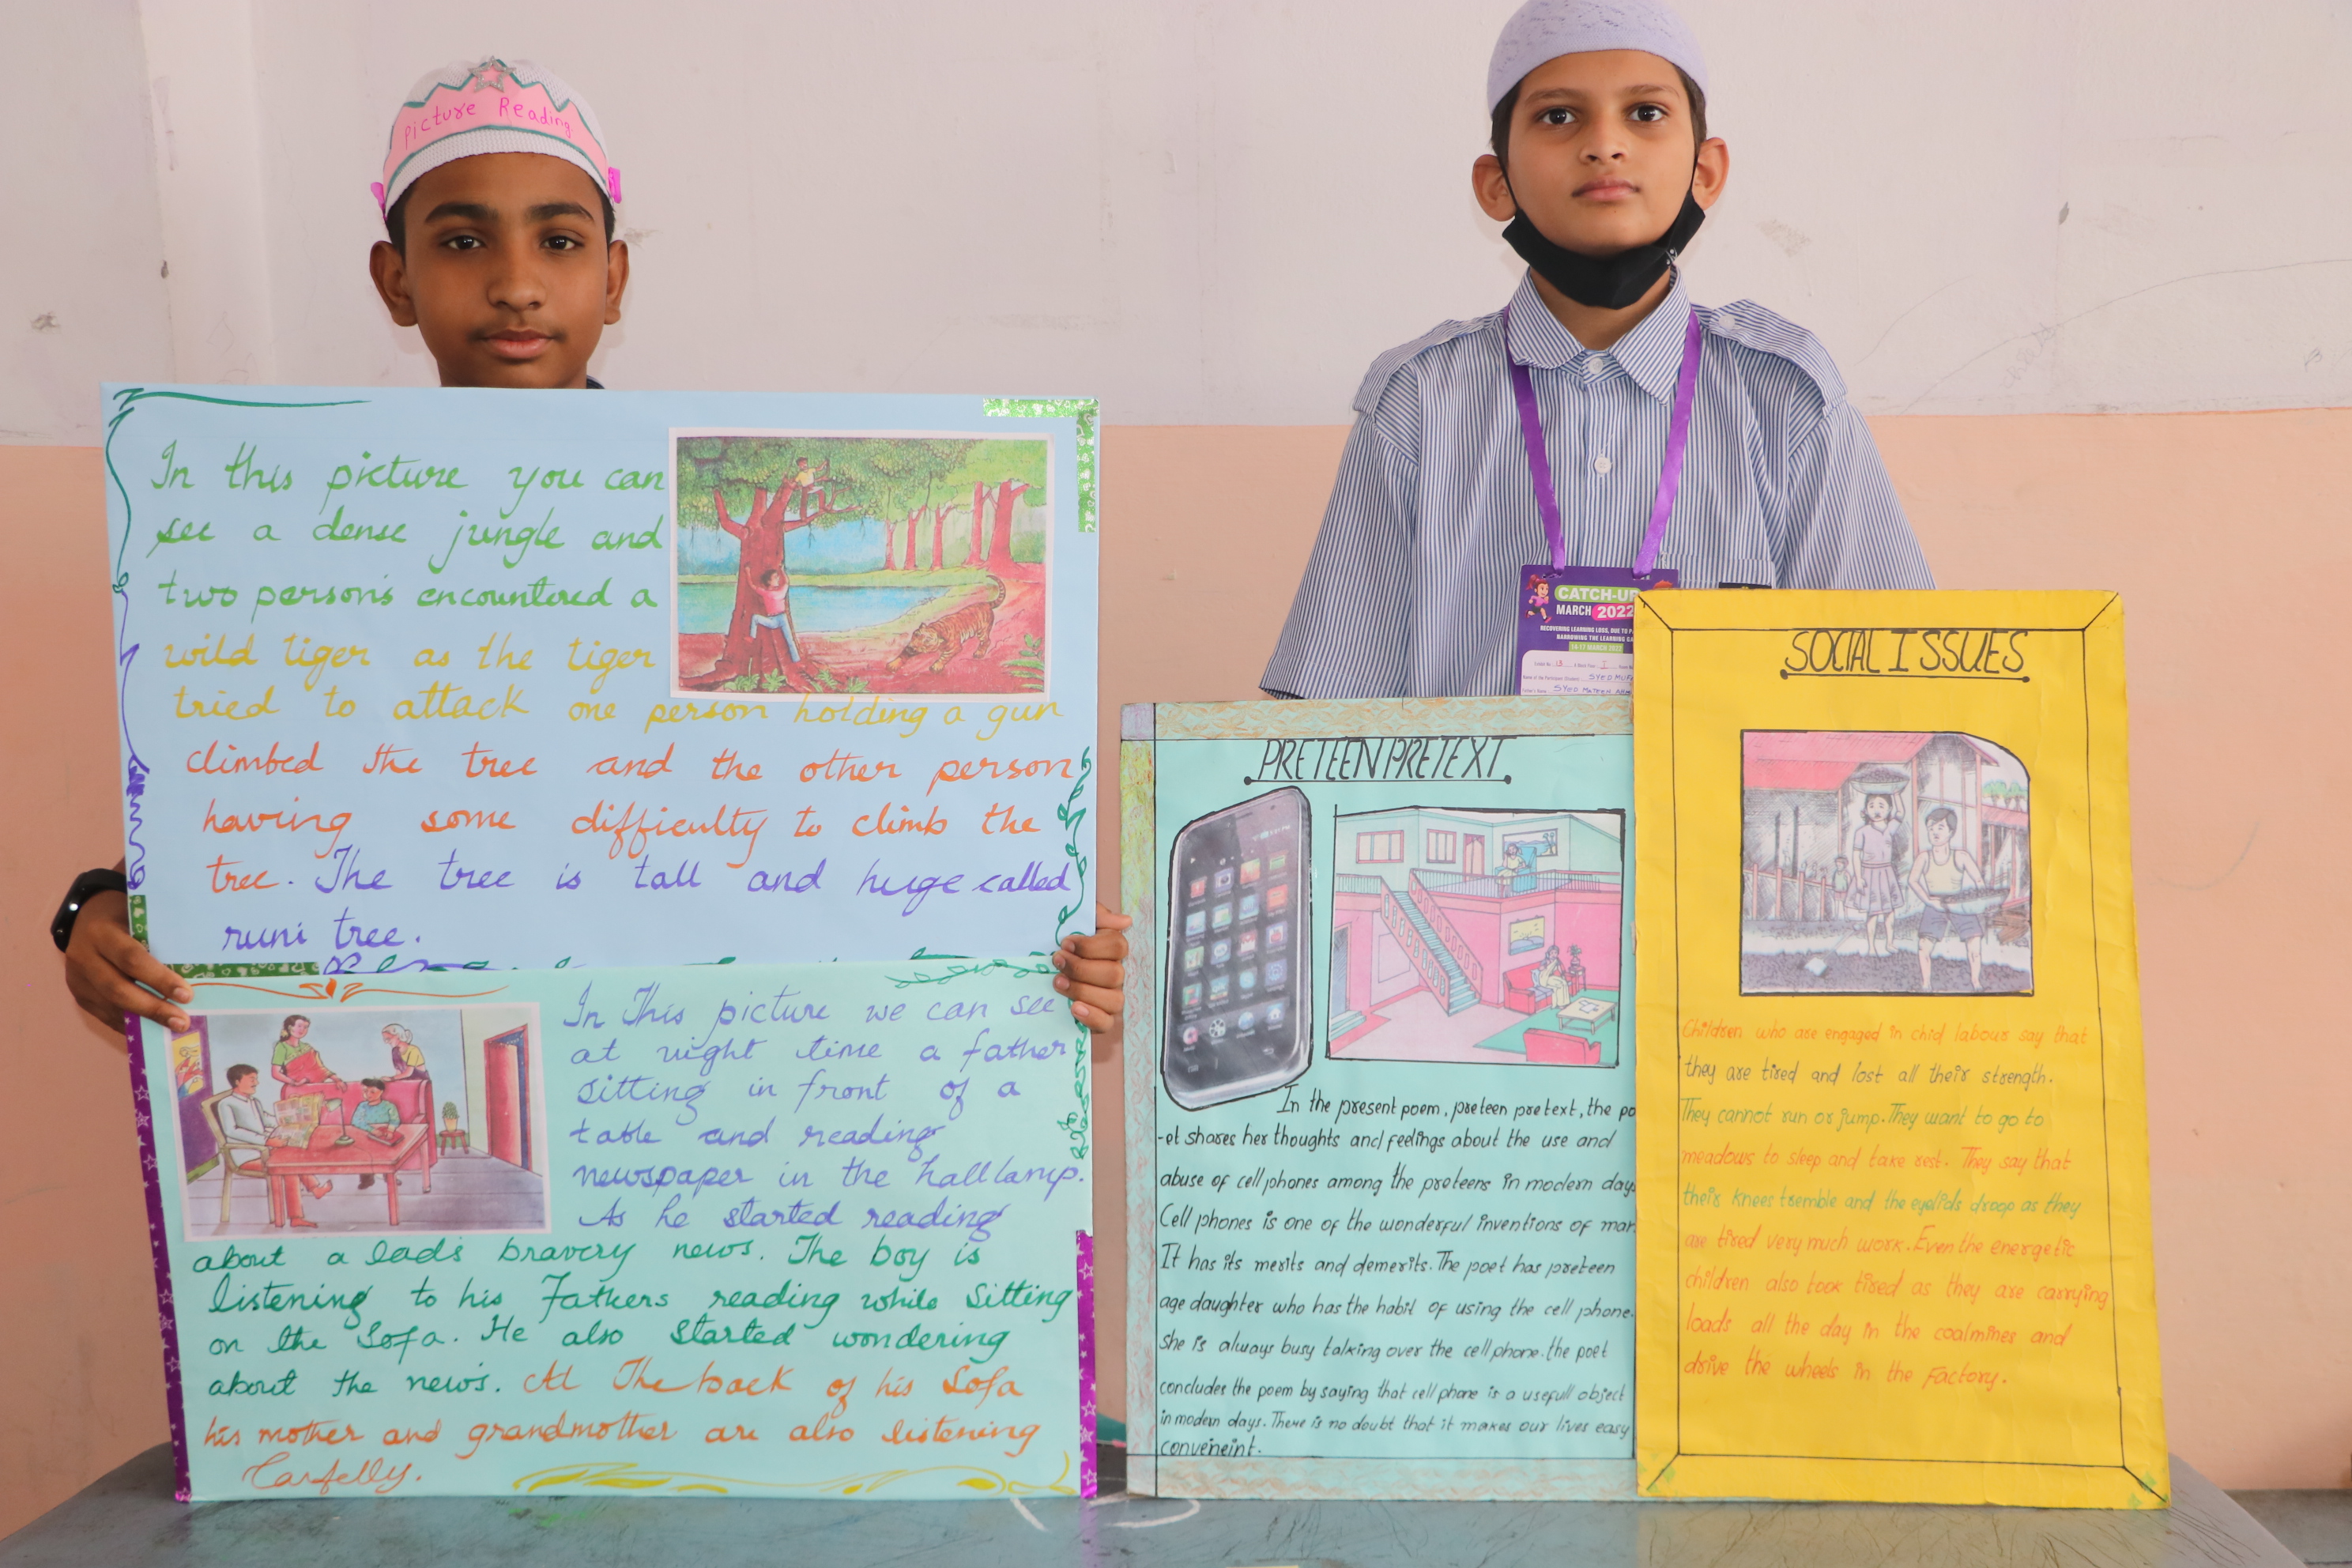 Picture Reading
In this picture you can
see a dense jungle and
two person's encountered a
wild tiger as the tiger
tried to attack one person holding a gun
climbed the tree and the other person
having some difficulty to climb the
tree. The tree is tall and huge called
runi tree.
In This picture we can see
at night time a father
sitting in front of a
table and reading
newspaper in the hall lamp.
As he started reading
about a lad's bravery news. The boy is
listening to his Fathers reading while sitting
on the Sofa. He also started wondering
about the news. At The back of his Sofa
his mother and grandmother are also listening
Carfelly.
CATCH-UP
MARCH 2022
RECOVERING LEARNING LOSS, DUE TO
NARROWING THE LEARNING
14-17 MARCH 2022
SYED
SYED MATEEN
PRETEEN PRETEXT
In the present poem, preteen pretext, the po
-et shares her thoughts and feelings about the use and
abuse of cell phones among the preteens in modern days
Cell phones is one of the wonderful inventions of man
It has its merits and demerits. The poet has preteen
age daughter who has the habit of using the cell phone.
She is always busy talking over the cell phone. the poet
concludes the poem by saying that cell phone is a usefull object
in modern days. There is no doubt that it makes our lives easy
conveneint.
SOCIAL ISSUES
Children who are engaged in chid labour say that
they are tired and lost all their strength.
They cannot run or jump. They want to go to
meadows to sleep and take rest. They say that
their knees tremble and the eyelids droop as they
are tired very much work. Even the energetic
children also took tired as they are carrying
loads all the day in the coalmines and
drive the wheels in the Factory.